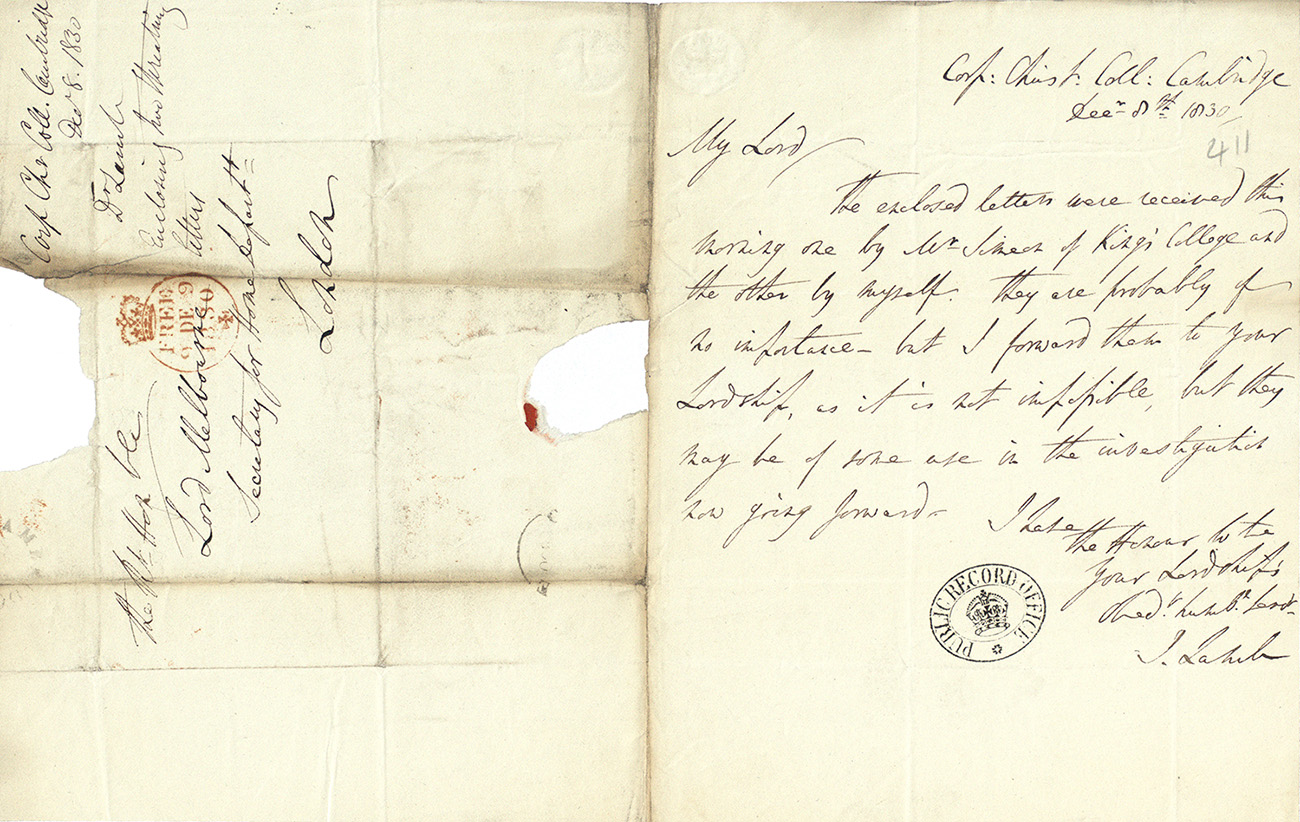 Corp Chr Coll. Cambridge
Decr 8. 1830
Dr Lamb
Enclosing two threatning
letters
FREE
9 DE 9
1830
The Rt Hon ble
Lord Melbourne
Secretary for Home Depart.t
London
Corp: Christ. Coll: Cambridge
Decr 8th 1830
411
My Lord
The enclosed letters were received this
morning one by Mr Simeon of King's College and
the other by myself. They are probably of
no importance – but I forward them to your
Lordship, as it is not impossible, but they
may be of some use in the investigation
now going forward –
I have
the Honour to be
Your Lordship's
Obed.t humb.le Serv.t
J. Lamb
PUBLIC RECORD OFFICE